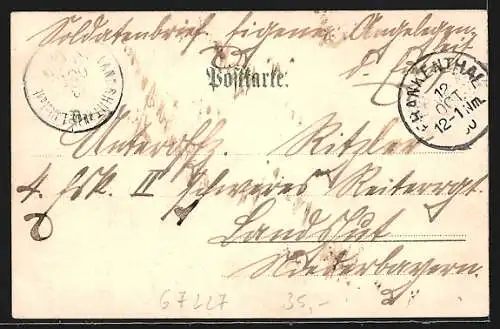 Soldatenbrief Eigene Angelegen-
heit
d. Empf.
Postkarte.
FRANKENTHAL
12
OCT
12-1 Nm.
LANDSHUT
Unteroffz. Ritzler
4. Esk. II Schweres Reiterregt.
Landshut
Niederbayern.
67227 35,-